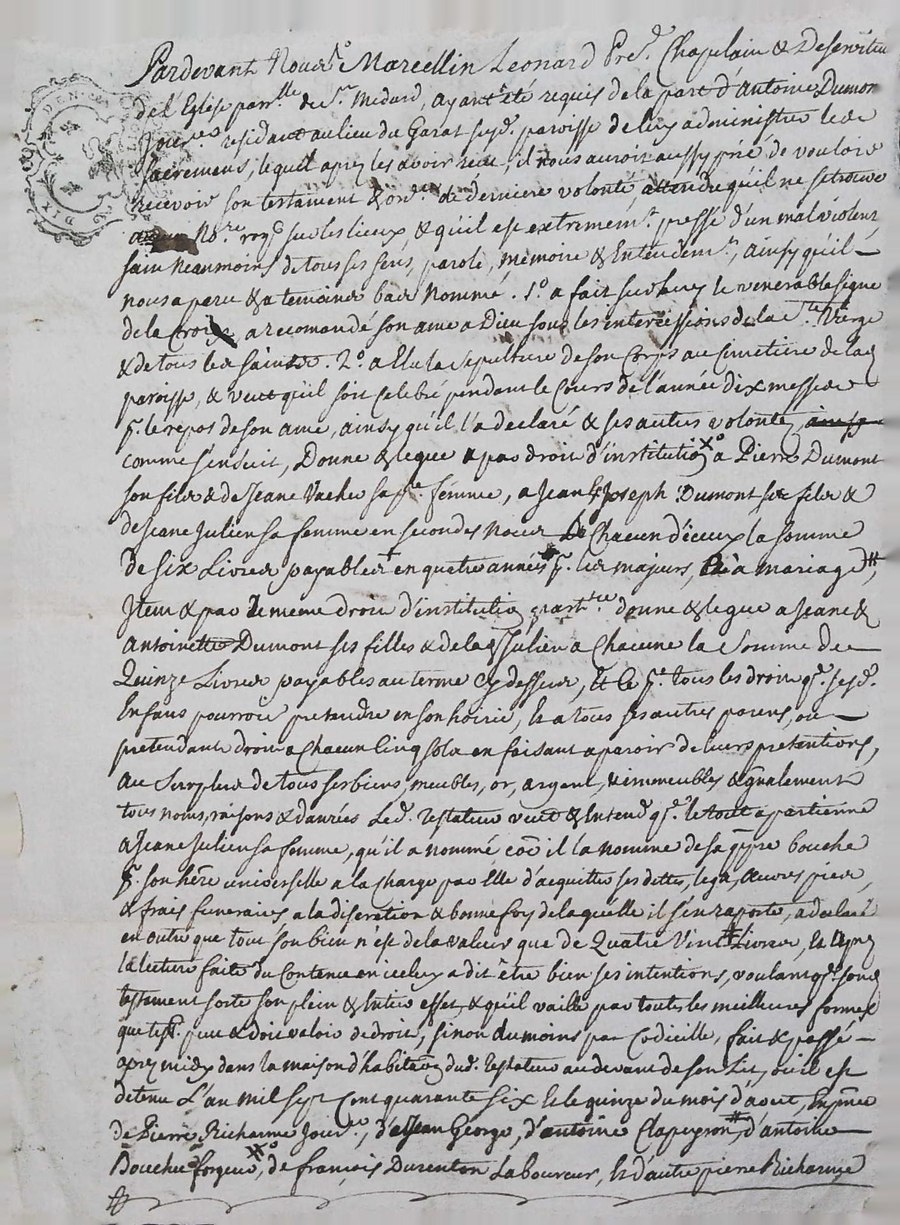 Pardevant Nous Sr. Marcellin Leonard Pre. Chapelain & Deservite
de l'Eglise parlle. de St. Medard, ayant été requis de la part d'Antoine Dumon
Jour. residant au lieu du Garat susd. paroisse de luy administrer les
sacremens, lequel aprez les avoir reçu, il nous auroit aussy prié de vouloir
recevoir son testament & ore. de derniere volonté, attendu qu'il ne se trouve
aucun Nore. roy. sur les lieux, & qu'il est extremement pressé d'un mal violent
sain neanmoins de tous ses sens, parole, memoire & Entendemt., ainsy qu'il
nous a paru & a temoins bas Nommé. 1o. a fait sur luy le venerable signe
de la Croix, a recomandé son ame a Dieu sous les intercessions de la Ste. Vierge
& de tous les saints. 2o. a élu la sepulture de son Corps au Cimetière de lad.
paroisse, & veut qu'il soit Celebré pendant le Cours de l'année dix messes
pr. le repos de son ame, ainsy qu'il l'a declaré & ses autres volontez, ainsy
comme s'ensuit, Donne & legue a par droit d'institution a Pierre Dumont
son fils & de Jeane Vacher sa fe. femme, a Jean & Joseph Dumont ses fils &
de Jeane Julien sa femme en secondes Noces De Chacun d'iceux la somme
de six Livres payables en quatre années pr. les majurs, ou à mariage,
Item & par le meme droit d'institution donne & legue a Jeane &
Antoinette Dumont ses filles & de lad. Julien a Chacune la Somme de
Quinze Livres payables au terme Cy dessus, Et ce pr. tous les droits q. sesd.
Enfans pourroit pretendre en son hoirie, Et a tous ses autres parens, ou
pretendant droit a Chacun Cinq sols en faisant aparoir de leurs pretentions,
Au Surplus de tous ses biens, meubles, or, argent, & immeubles & gnalement
tous noms, raisons & danrées Led. testateur veut & Entend q. le tout apartienne
a Jeane Julien sa femme, qu'il a nommé côe il la nomme de sa ppre bouche
pr. son here universelle a la Charge par Elle d'acquitter ses dettes, legas, oeuvres pies,
& frais funeraires a la discretion & bonne foy de laquelle il s'en raporte, a declaré
en outre que tout son bien n'est de la valeur que de Quatre Vint Livres, Et aprez
la lecture faite du Contenu en iceluy a dit être bien ses intentions, voulant q. son
testament sorte son plein & Entier effet, & qu'il vaille par toutes les meilleures formes
que test. peut & doit valoir de droit, sinon du moins par Codicille, fait & passé
aprez midy dans la maison d'habitaõn dud. testateur au devant de son Lit, où il est
detenu L'an mil sept Cent quarante six Et le quinze du mois d'aout, En pñce
de Pierre Richarme Jour., de Jean George, d'antoine Clapeyron, d'antoine
Bouchu forgeur, de françois Durenton Laboureur, & d'autre pierre Richarme